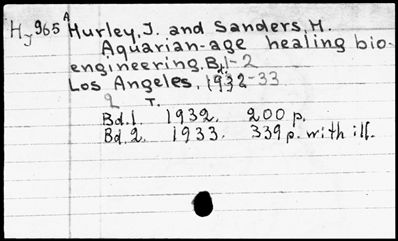 Hj 965 A Hurley, J. and Sanders, H.
Aquarian-age healing bio-
engineering. Bd. 1-2
Los Angeles, 1932-33
2 T.
Bd. 1. 1932. 200 p.
Bd. 2. 1933. 339 p. with ill.